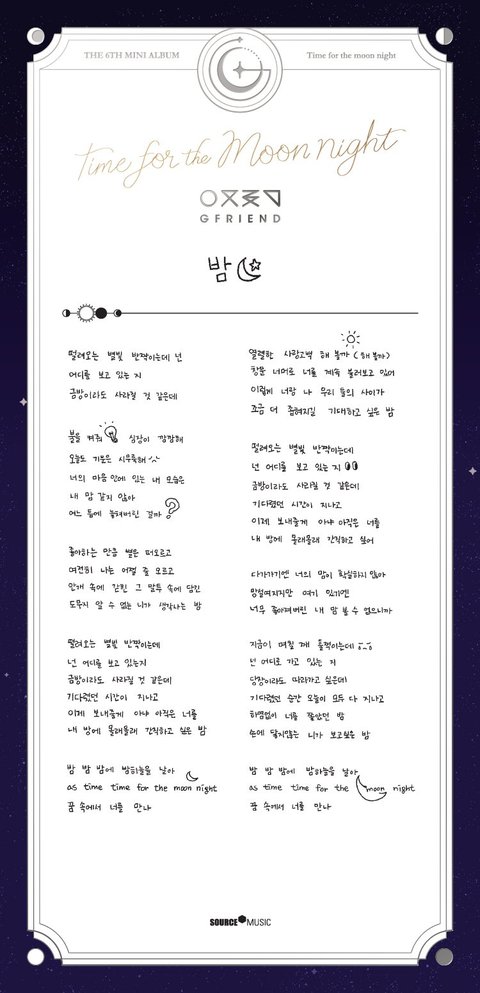 THE 6TH MINI ALBUM
Time for the moon night
Time for the Moon night
GFRIEND
밤
떨려오는 별빛 반짝이는데 넌
어디를 보고 있는 지
금방이라도 사라질 것 같은데
불을 켜줘 심장이 깜깜해
오늘도 기분은 시무룩해
너의 마음 안에 있는 내 모습은
내 맘 같지 않아
어느 틈에 놓쳐버린 걸까
좋아하는 만큼 별은 떠오르고
여전히 나는 어쩔 줄 모르고
안개 속에 갇힌 그 말투 속에 담긴
도무지 알 수 없는 니가 생각나는 밤
떨려오는 별빛 반짝이는데
넌 어디를 보고 있는지
금방이라도 사라질 것 같은데
기다렸던 시간이 지나고
이제 보내줄게 아냐 아직은 너를
내 방에 몰래몰래 간직하고 싶은 밤
밤 밤 밤에 밤하늘을 날아
as time time for the moon night
꿈 속에서 너를 만나
열렬한 사랑고백 해 볼까 (해 볼까)
창문 너머로 너를 계속 불러보고 있어
이렇게 너랑 나 우리 둘의 사이가
조금 더 좁혀지길 기대하고 싶은 밤
떨려오는 별빛 반짝이는데
넌 어디를 보고 있는 지
금방이라도 사라질 것 같은데
기다렸던 시간이 지나고
이제 보내줄게 아냐 아직은 너를
내 방에 몰래몰래 간직하고 싶어
다가가기엔 너의 맘이 확실하지 않아
망설여지지만 여기 있기엔
너무 좋아져버린 내 맘 볼 수 없으니까
지금이 며칠 째 들썩이는데
넌 어디로 가고 있는 지
당장이라도 따라가고 싶은데
기다렸던 순간 오늘이 모두 다 지나고
하염없이 너를 쫓았던 밤
손에 닿지않는 니가 보고싶은 밤
밤 밤 밤에 밤하늘을 날아
as time time for the moon night
꿈 속에서 너를 만나
SOURCE MUSIC